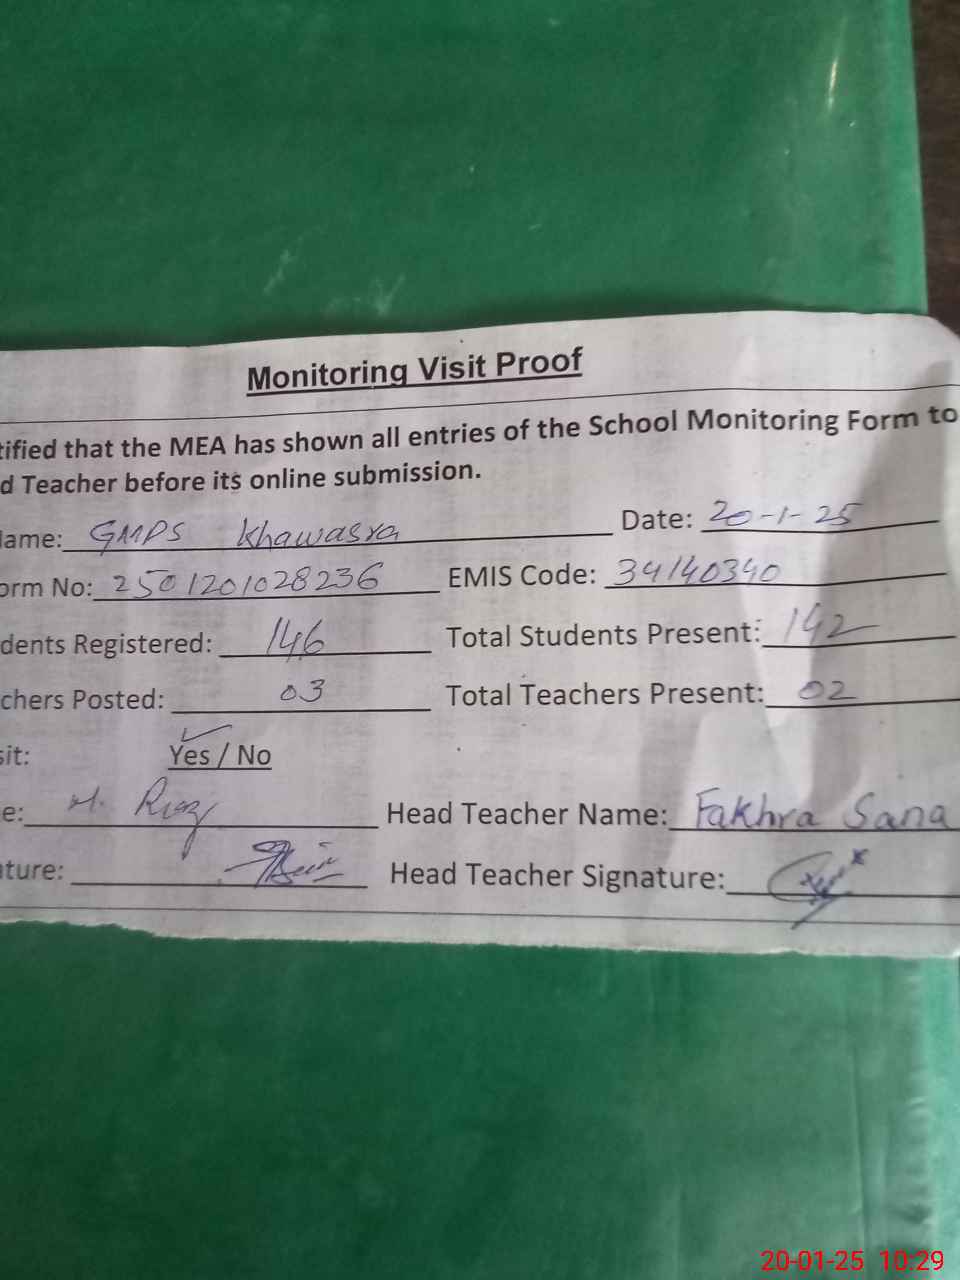 Monitoring Visit Proof
tified that the MEA has shown all entries of the School Monitoring Form to
d Teacher before its online submission.
ame: GMPS Khawasra Date: 20-1-25
orm No: 2501201028236 EMIS Code: 34140340
dents Registered: 146 Total Students Present: 142
chers Posted: 03 Total Teachers Present: 02
sit: Yes / No
e: M. Riaz Head Teacher Name: Fakhra Sana
ature: Head Teacher Signature:
20-01-25 10:29